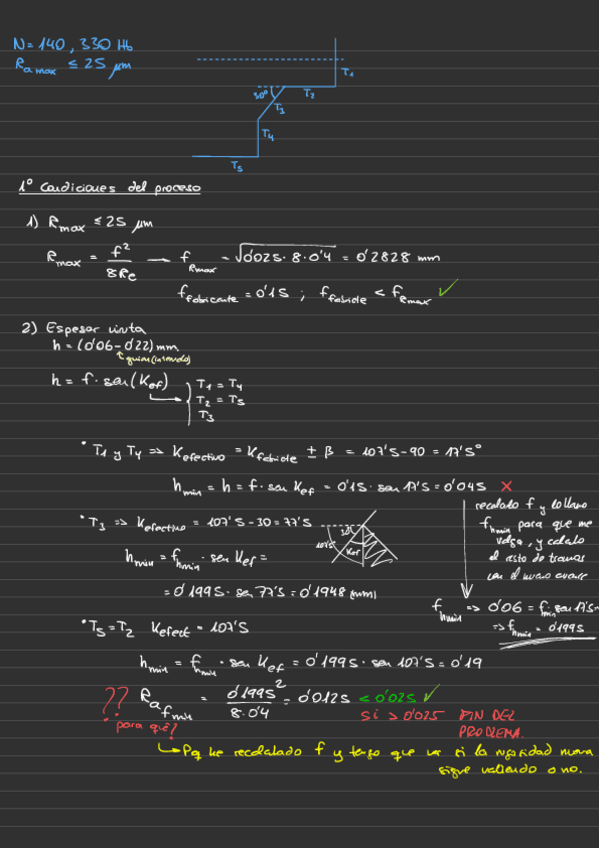 N=140, 330 Hb
Ra max ≤ 25 μm
T1
30º
T2
T3
T4
T5
1º Condiciones del proceso
1) Rmax ≤ 25 μm
Rmax = f² / 8Re — fRmax = √0'025·8·0'4 = 0'2828 mm
ffabricante = 0'15 ; ffabcte < fRmax ✓
2) Espesor viruta
h = (0'06-0'22) mm
h = f·sen(Kef)
T1 = T4
T2 = T5
T3
* T1 y T4 => Kefectivo = Kfabcte ± β = 107'5-90 = 17'5º
hmin = h = f·sen Kef = 0'15·sen 17'5 = 0'045 X
recalculo f y lo llamo
fhmin para que me
valga, y calculo
el resto de tramos
con el nuevo avance
fhmin => 0'06 = fhmin·sen 17'5
=> fhmin = 0'1995
* T3 => Kefectivo = 107'5-30 = 77'5
30
107'5
Kef
hmin = fhmin·sen Kef =
= 0'1995·sen 77'5 = 0'1948 (mm)
* T5 = T2 Kefect = 107'5
hmin = fhmin·sen Kef = 0'1995·sen 107'5 = 0'19
?? Ra fmin = 0'1995² / 8·0'4 = 0'0125 < 0'025 ✓
para qué?
si > 0'025 FIN DEL
PROBLEMA.
Pq he recalculado f y tengo que ver si la rugosidad nueva
sigue valiendo o no.